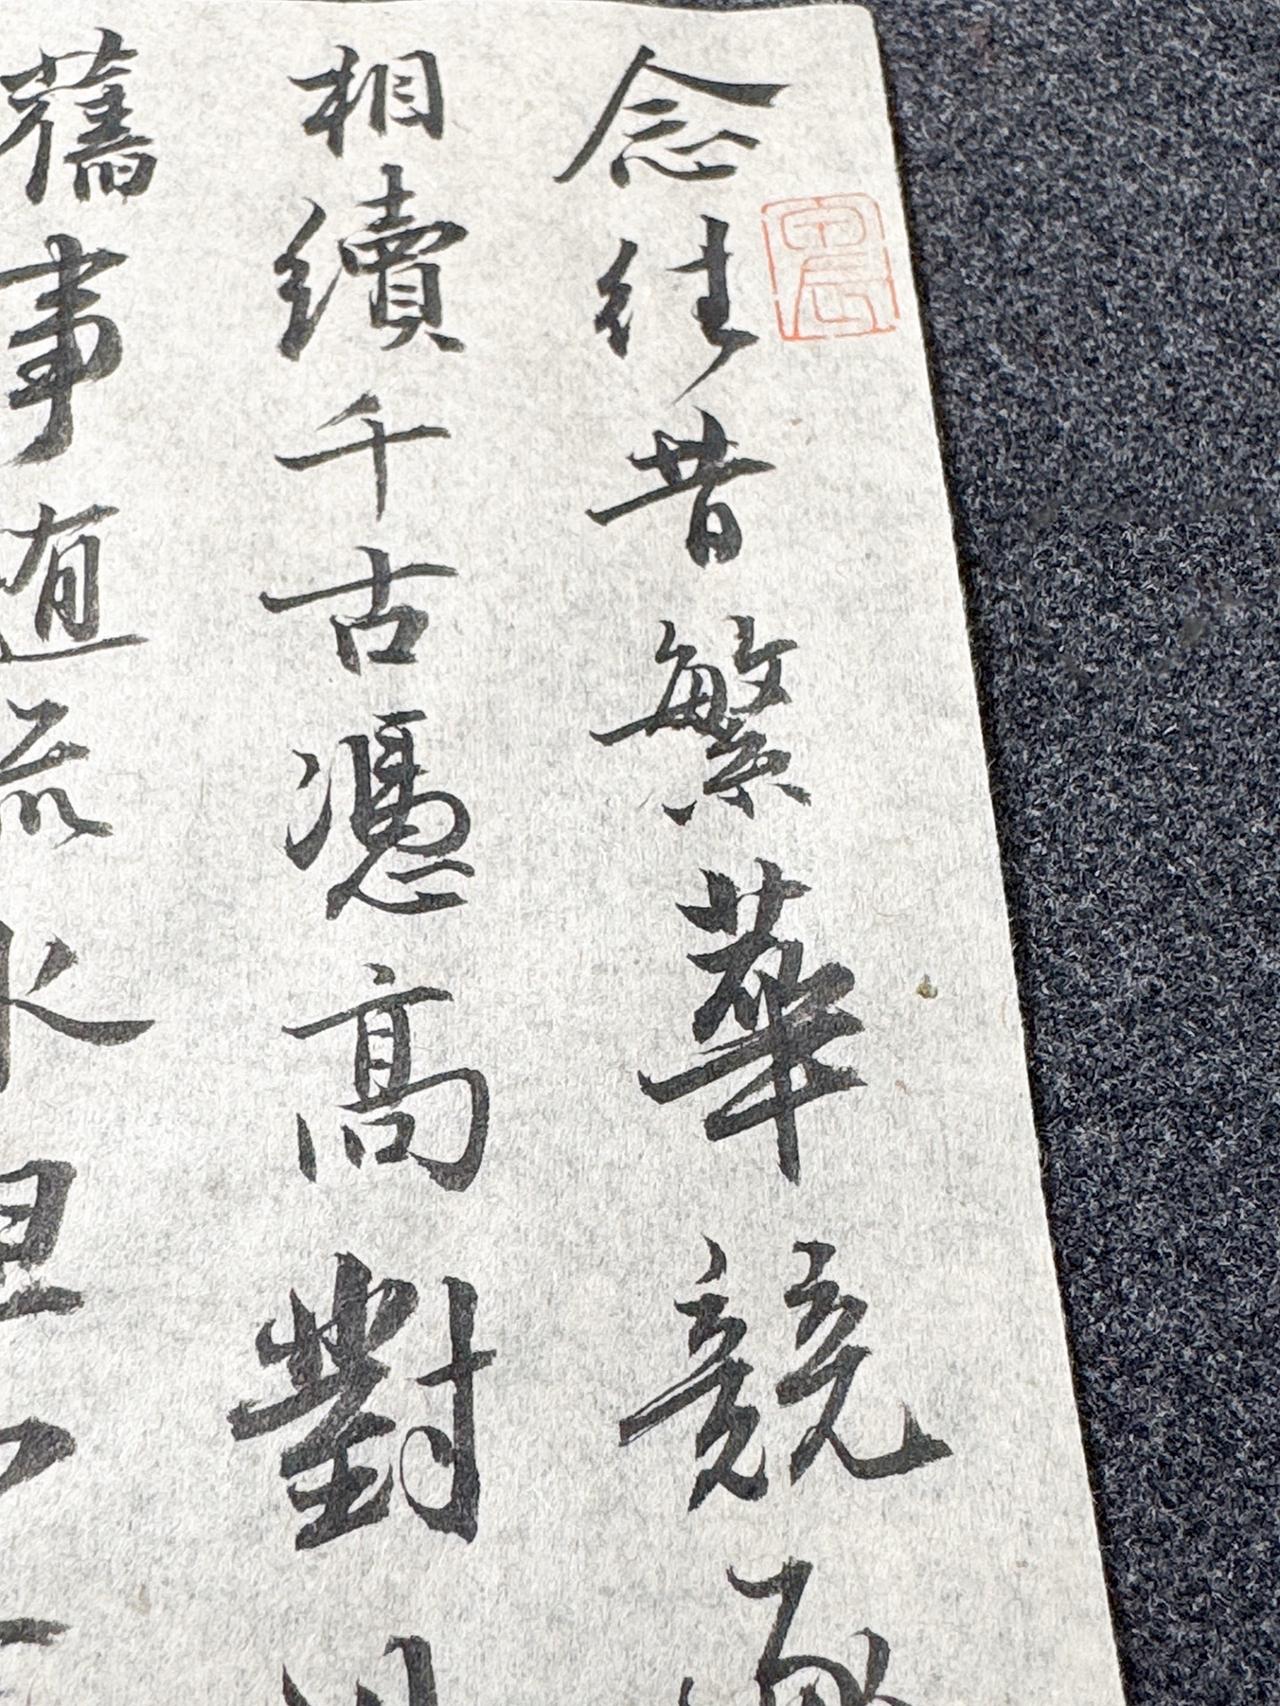 念往昔繁華競逐
相續千古憑高對
舊事随流水但